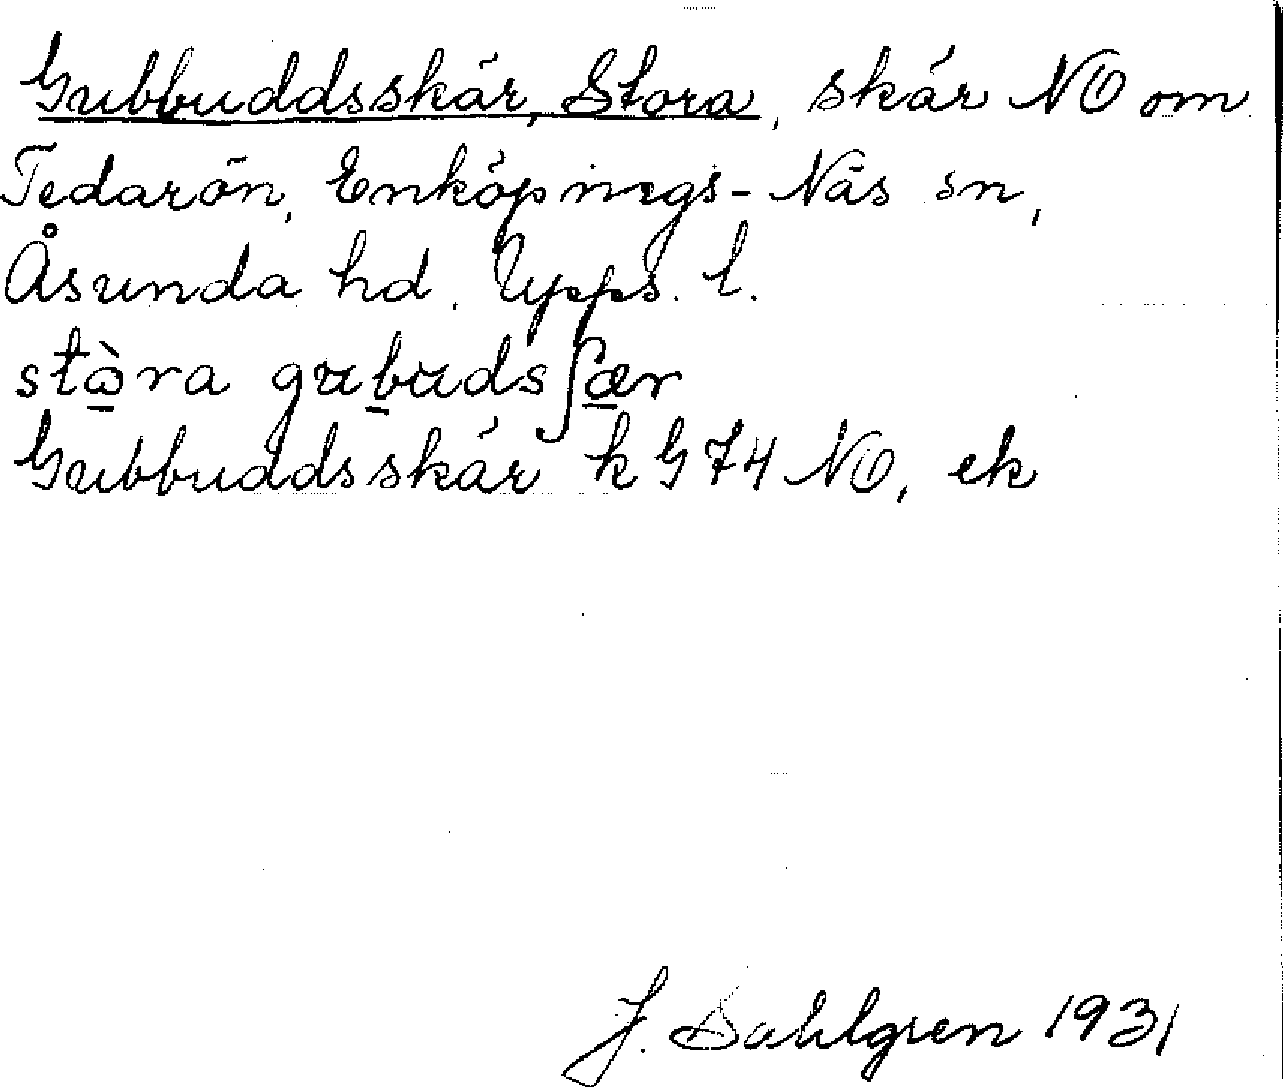 Gubbuddsskär, Stora, skär NO om
Tedarön, Enköpings-Näs sn,
Åsunda hd. Upps. l.
stɷ̀ra gubudsʃær
Gubbuddsskär k G 74 NO, ek
J. Dahlgren 1931